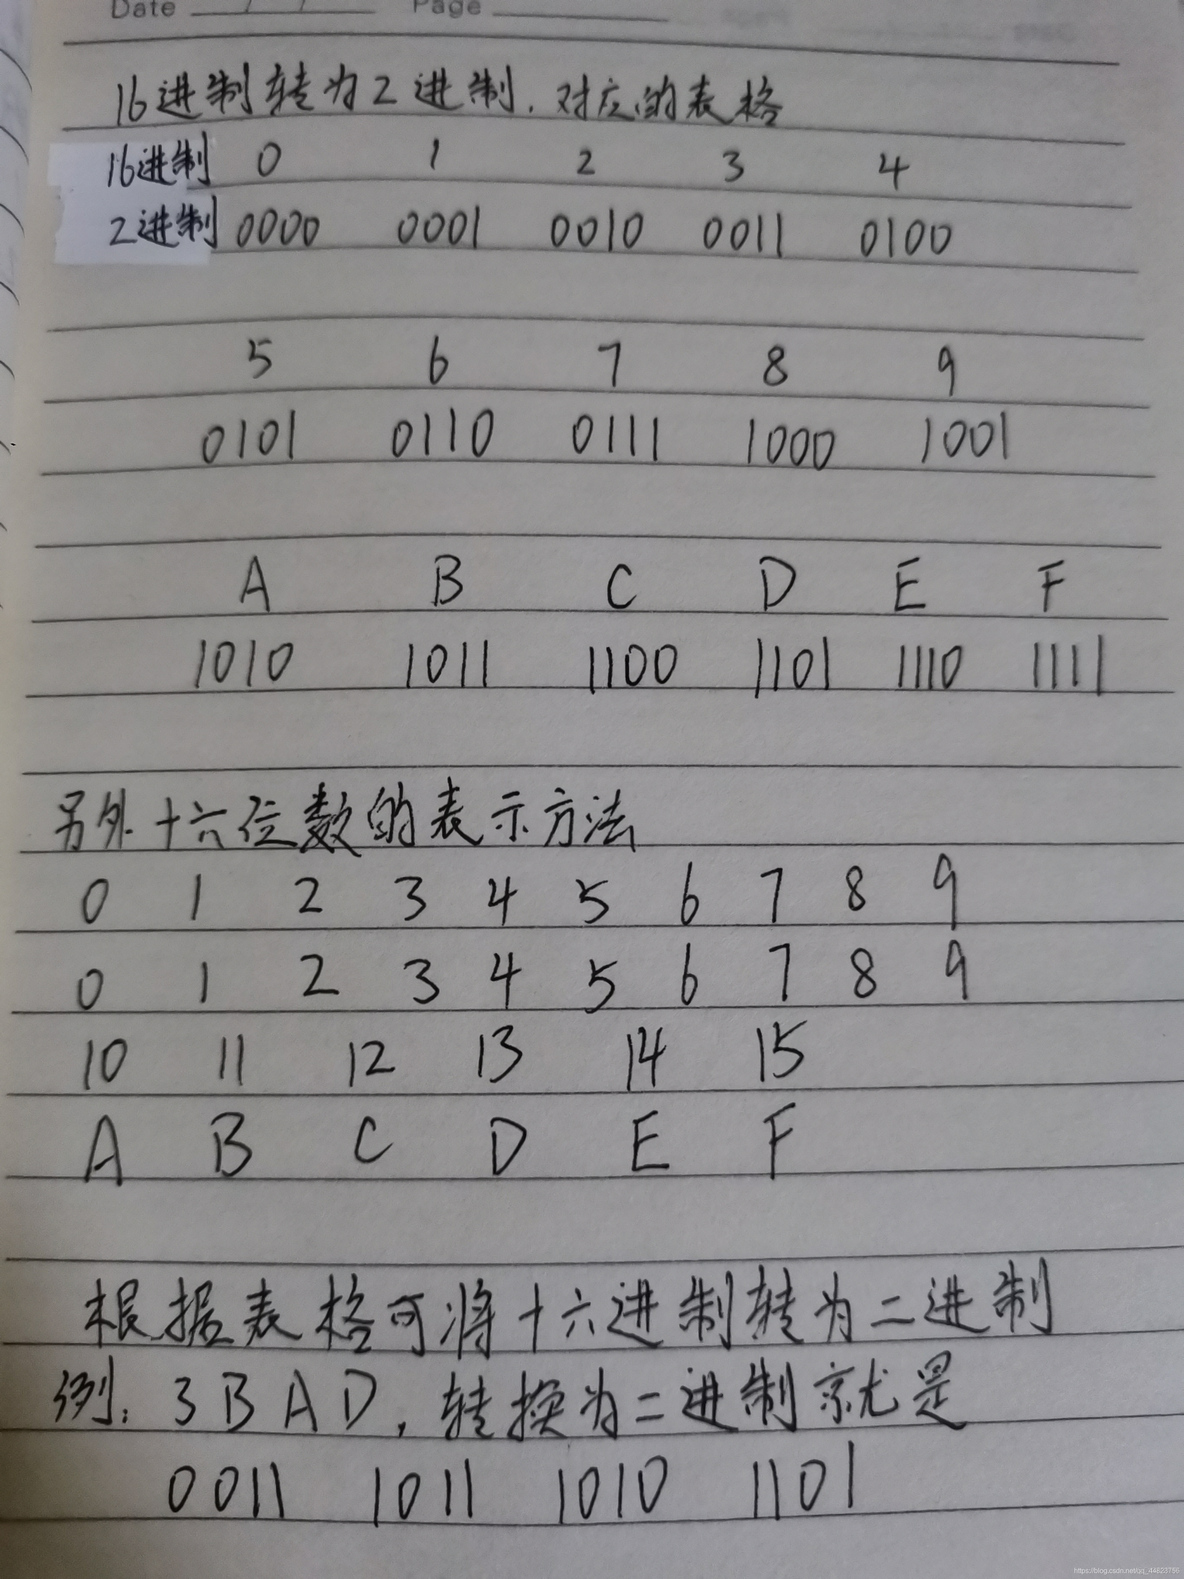 Date / / Page
16进制转为2进制.对应的表格
16进制 0 1 2 3 4
2进制 0000 0001 0010 0011 0100
5 6 7 8 9
0101 0110 0111 1000 1001
A B C D E F
1010 1011 1100 1101 1110 1111
另外十六位数的表示方法
0 1 2 3 4 5 6 7 8 9
0 1 2 3 4 5 6 7 8 9
10 11 12 13 14 15
A B C D E F
根据表格可将十六进制转为二进制
例:3BAD,转换为二进制就是
0011 1011 1010 1101